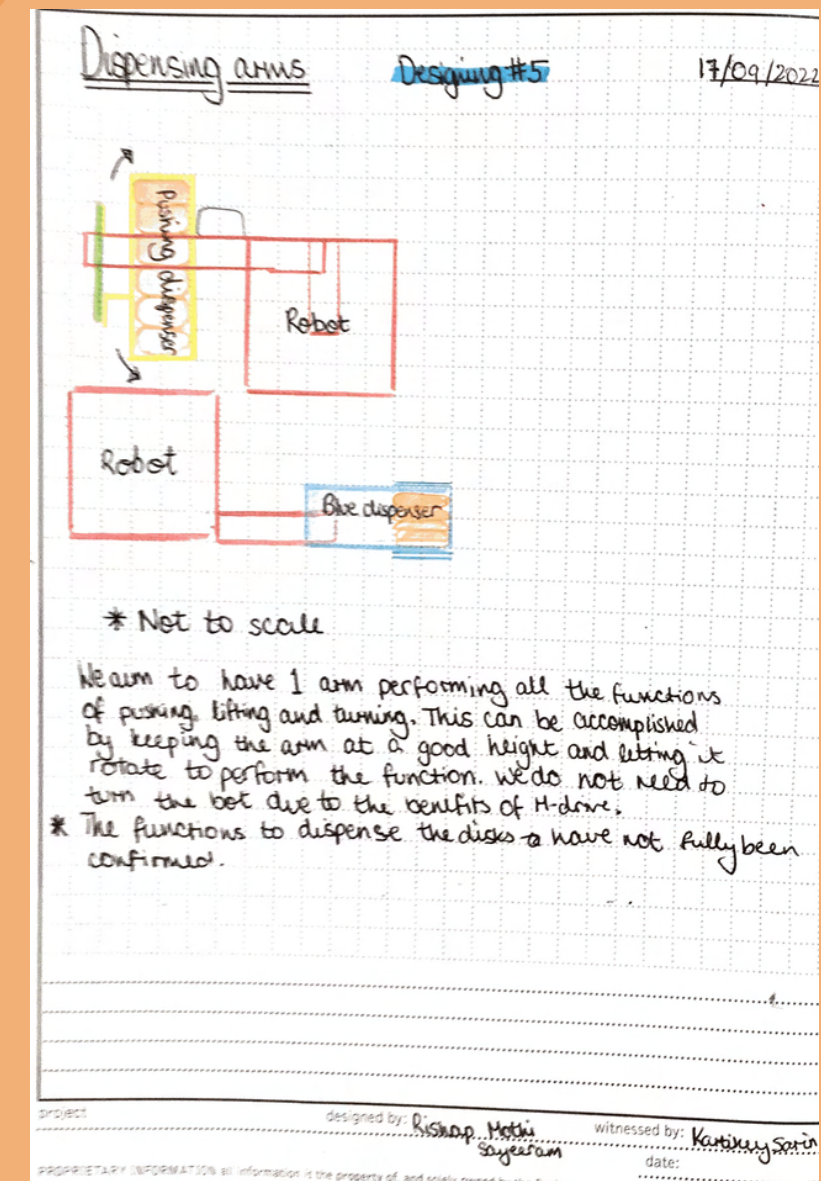 Dispensing arms
Designing #5
17/09/2022
Pushing dispenser
Robot
Robot
Blue dispenser
* Not to scale
We aim to have 1 arm performing all the functions
of pushing, lifting and turning. This can be accomplished
by keeping the arm at a good height and letting it
rotate to perform the function. We do not need to
turn the bot due to the benifits of H-drive.
* The functions to dispense the disks have not fully been
confirmed.
project
designed by: Rishap Mothi
Sayeeram
witnessed by: Kartikey Sarin
date:
PROPRIETARY INFORMATION all information is the property of, and solely owned by the